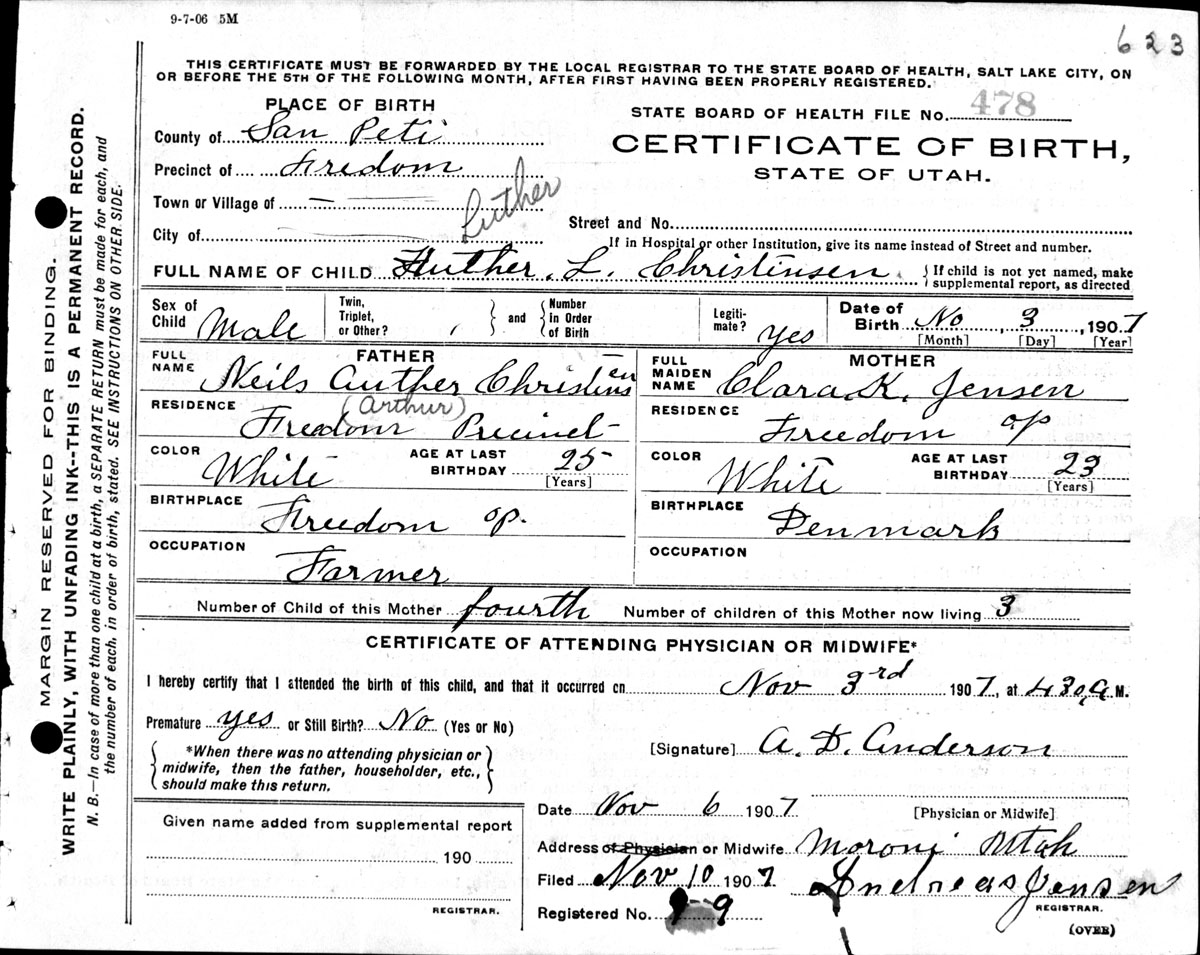 9-7-06 5M
623
THIS CERTIFICATE MUST BE FORWARDED BY THE LOCAL REGISTRAR TO THE STATE BOARD OF HEALTH, SALT LAKE CITY, ON
OR BEFORE THE 5TH OF THE FOLLOWING MONTH, AFTER FIRST HAVING BEEN PROPERLY REGISTERED.
PLACE OF BIRTH
STATE BOARD OF HEALTH FILE No. 478
County of San Peti
CERTIFICATE OF BIRTH,
Precinct of Fredom
STATE OF UTAH.
Town or Village of — —
Luther
City of
Street and No.
If in Hospital or other Institution, give its name instead of Street and number.
FULL NAME OF CHILD Huther. L. Christinsen { If child is not yet named, make supplemental report, as directed
Sex of Child Male Twin, Triplet, or Other? , } and { Number in Order of Birth Legiti-mate? yes Date of Birth No 3, 1907
[Month] [Day] [Year]
FATHER
MOTHER
FULL NAME Neils Auther Christinsen
FULL MAIDEN NAME Clara K. Jensen
(Arthur)
RESIDENCE Freedom Precinct
RESIDENCE Freedom op
COLOR White AGE AT LAST BIRTHDAY 25 [Years]
COLOR White AGE AT LAST BIRTHDAY 23 [Years]
BIRTHPLACE Freedom op.
BIRTHPLACE Denmark
OCCUPATION Farmer
OCCUPATION
Number of Child of this Mother fourth Number of children of this Mother now living 3
CERTIFICATE OF ATTENDING PHYSICIAN OR MIDWIFE*
I hereby certify that I attended the birth of this child, and that it occurred on Nov 3rd 1907, at 430 A M.
Premature yes or Still Birth? No (Yes or No)
{ *When there was no attending physician or
midwife, then the father, householder, etc.,
should make this return. }
[Signature] A. D. Anderson
Given name added from supplemental report
190
REGISTRAR.
Date Nov 6 1907
[Physician or Midwife]
Address of Physician or Midwife Moroni Utah
Filed Nov 10 1907 Andreas Jensen
REGISTRAR.
Registered No. 9
(OVER)
MARGIN RESERVED FOR BINDING.
WRITE PLAINLY, WITH UNFADING INK--THIS IS A PERMANENT RECORD.
N. B.—In case of more than one child at a birth, a SEPARATE RETURN must be made for each, and
the number of each, in order of birth, stated. SEE INSTRUCTIONS ON OTHER SIDE.